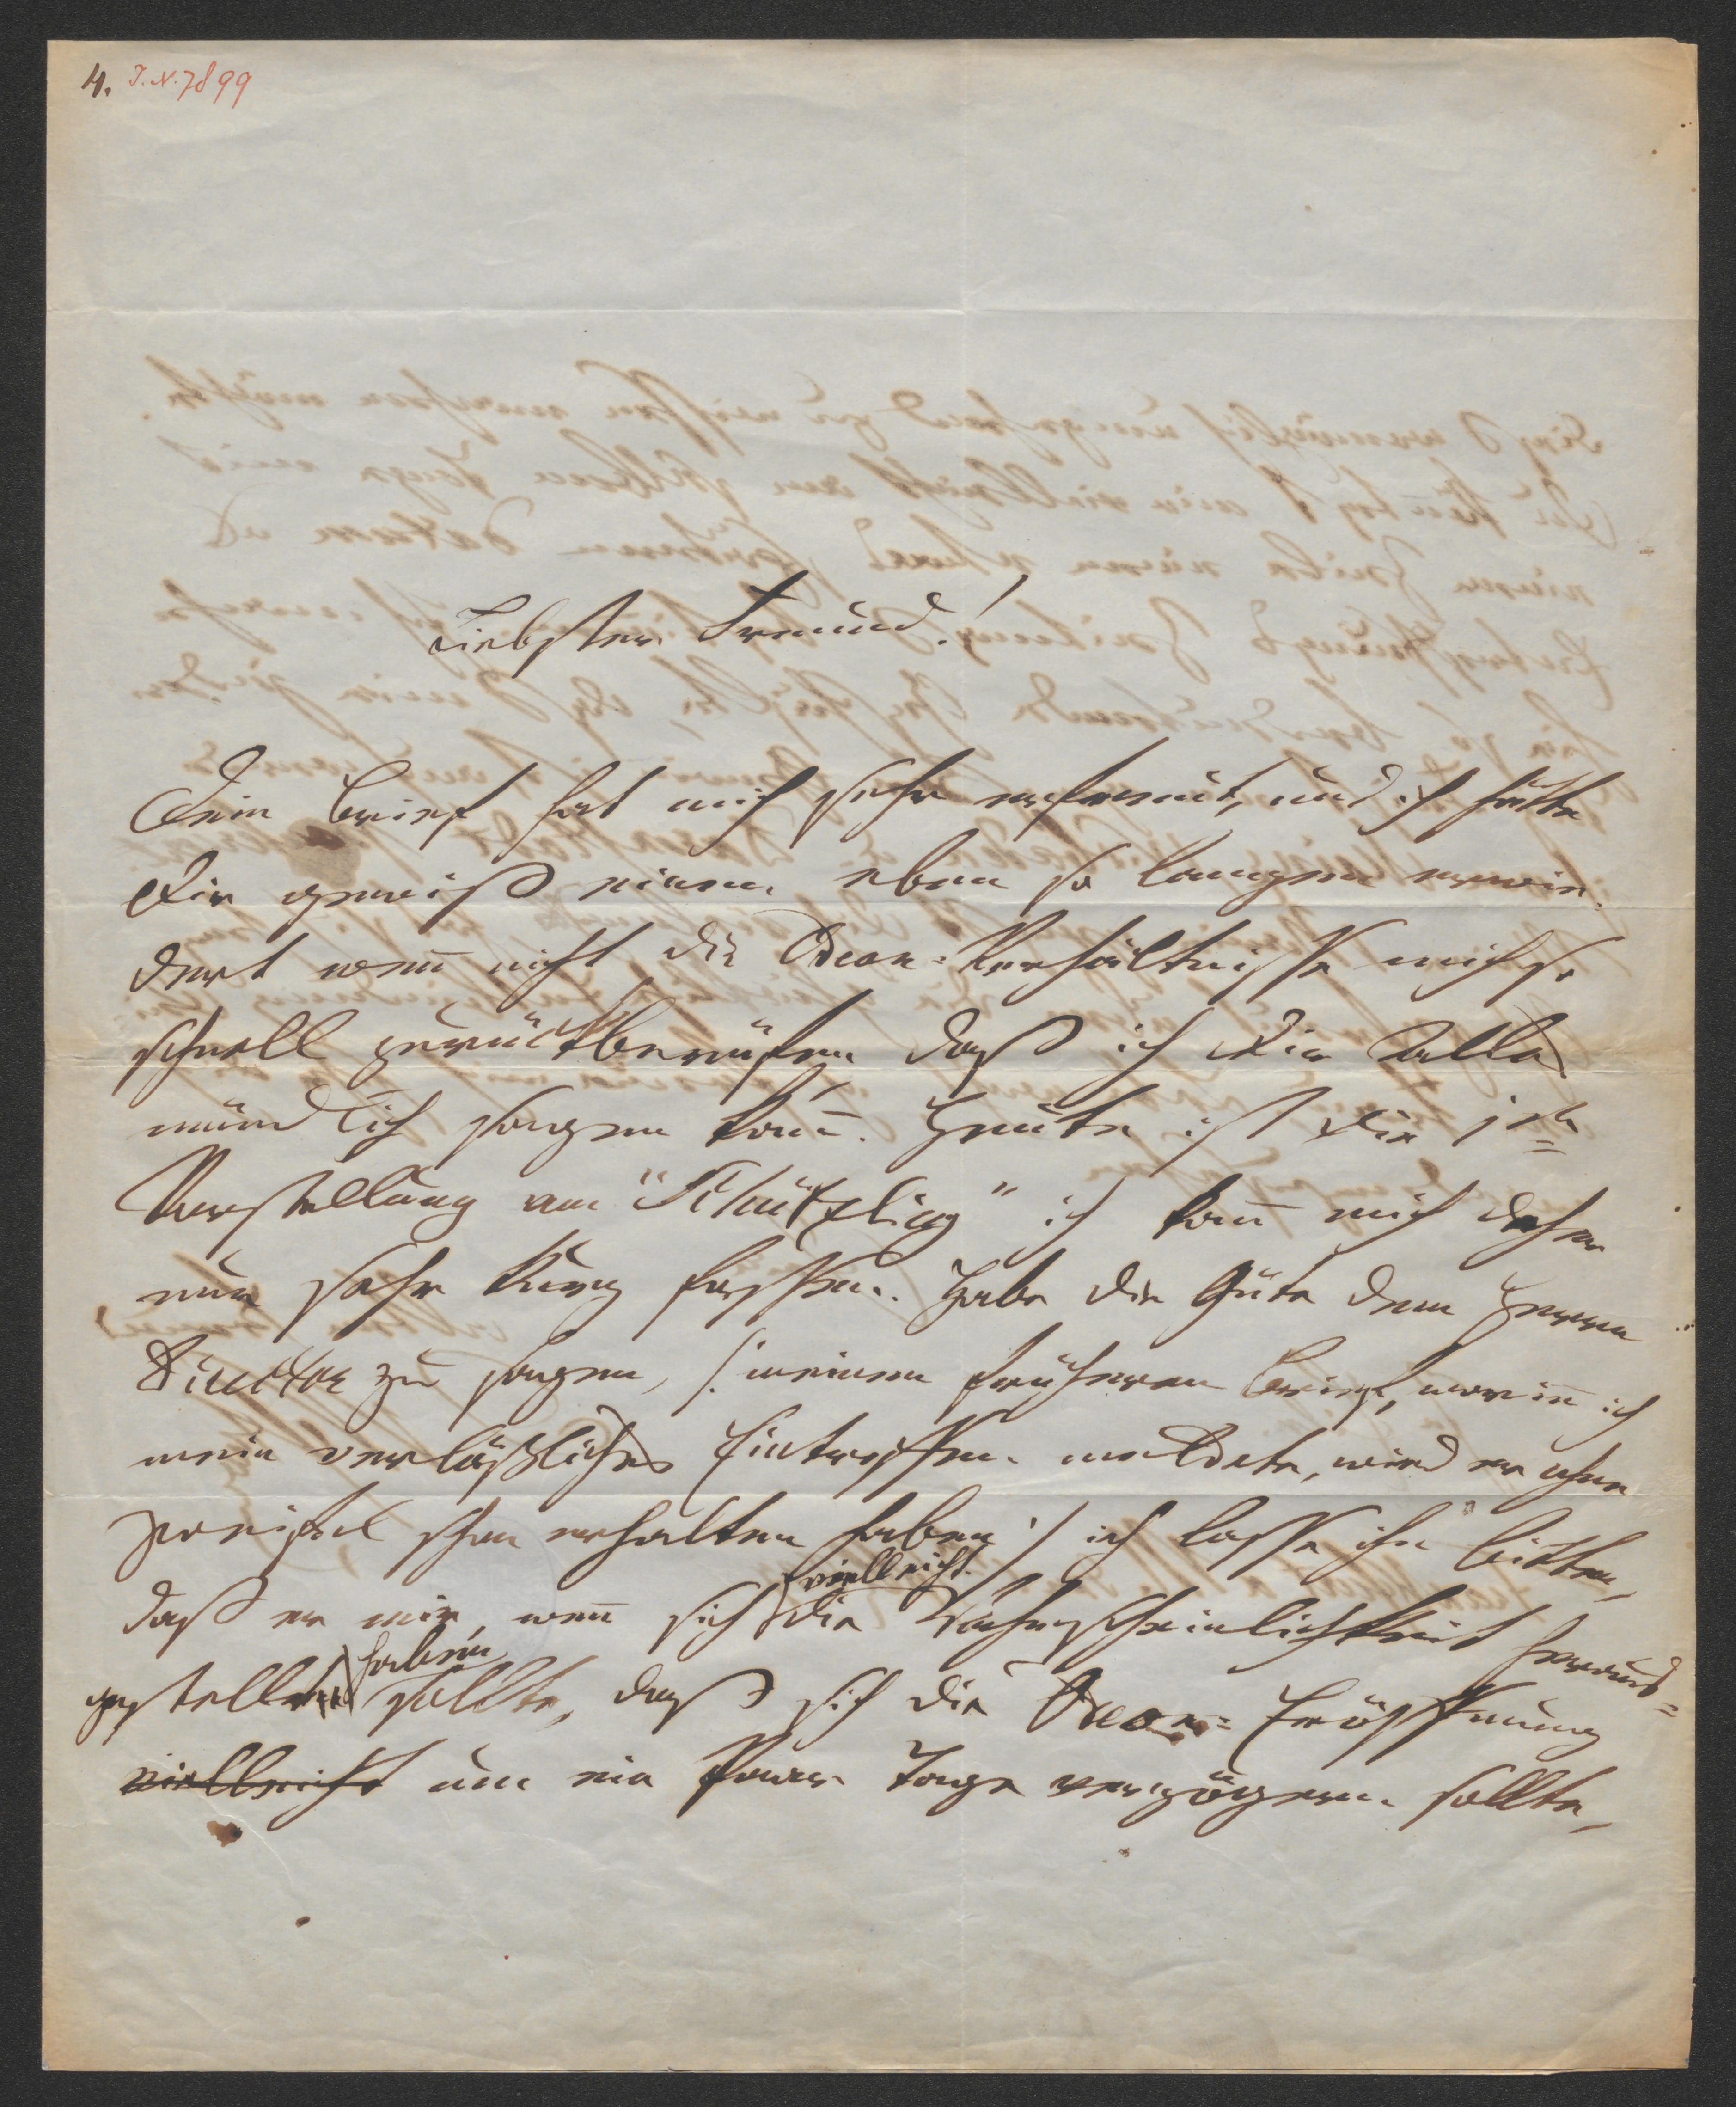 4. I.N. 7899
Liebster Freund!
Dein Brief hat mich sehr erfreut, und ich hätte
Dir gewiß einen eben so langen erwie-
dert wen̅ nicht die Odeon-Verhältnisse mich so
schnell zurückberufen daß ich Dir Alles
mündlich sagen kan̅. Heute ist die 1te
Vorstellung von "Schützling" ich kan̅ mich daher
nur sehr kurz fassen. Habe die Güte dem Herrn
Director zu sagen, /: meinen früheren Brief, worin̅ ich
mein verläßliches Eintreffen meldete, wird er ohne
Zweifel schon erhalten haben :/ ich lasse ihn bitten,
vielleicht
daß er mir, wen̅ sich die Wahrscheinlichkeit heraus=
haben
gestellt sollte, daß sich die Odeon= Eröffnung
vielleicht um ein Paar Tage verzögern sollte,